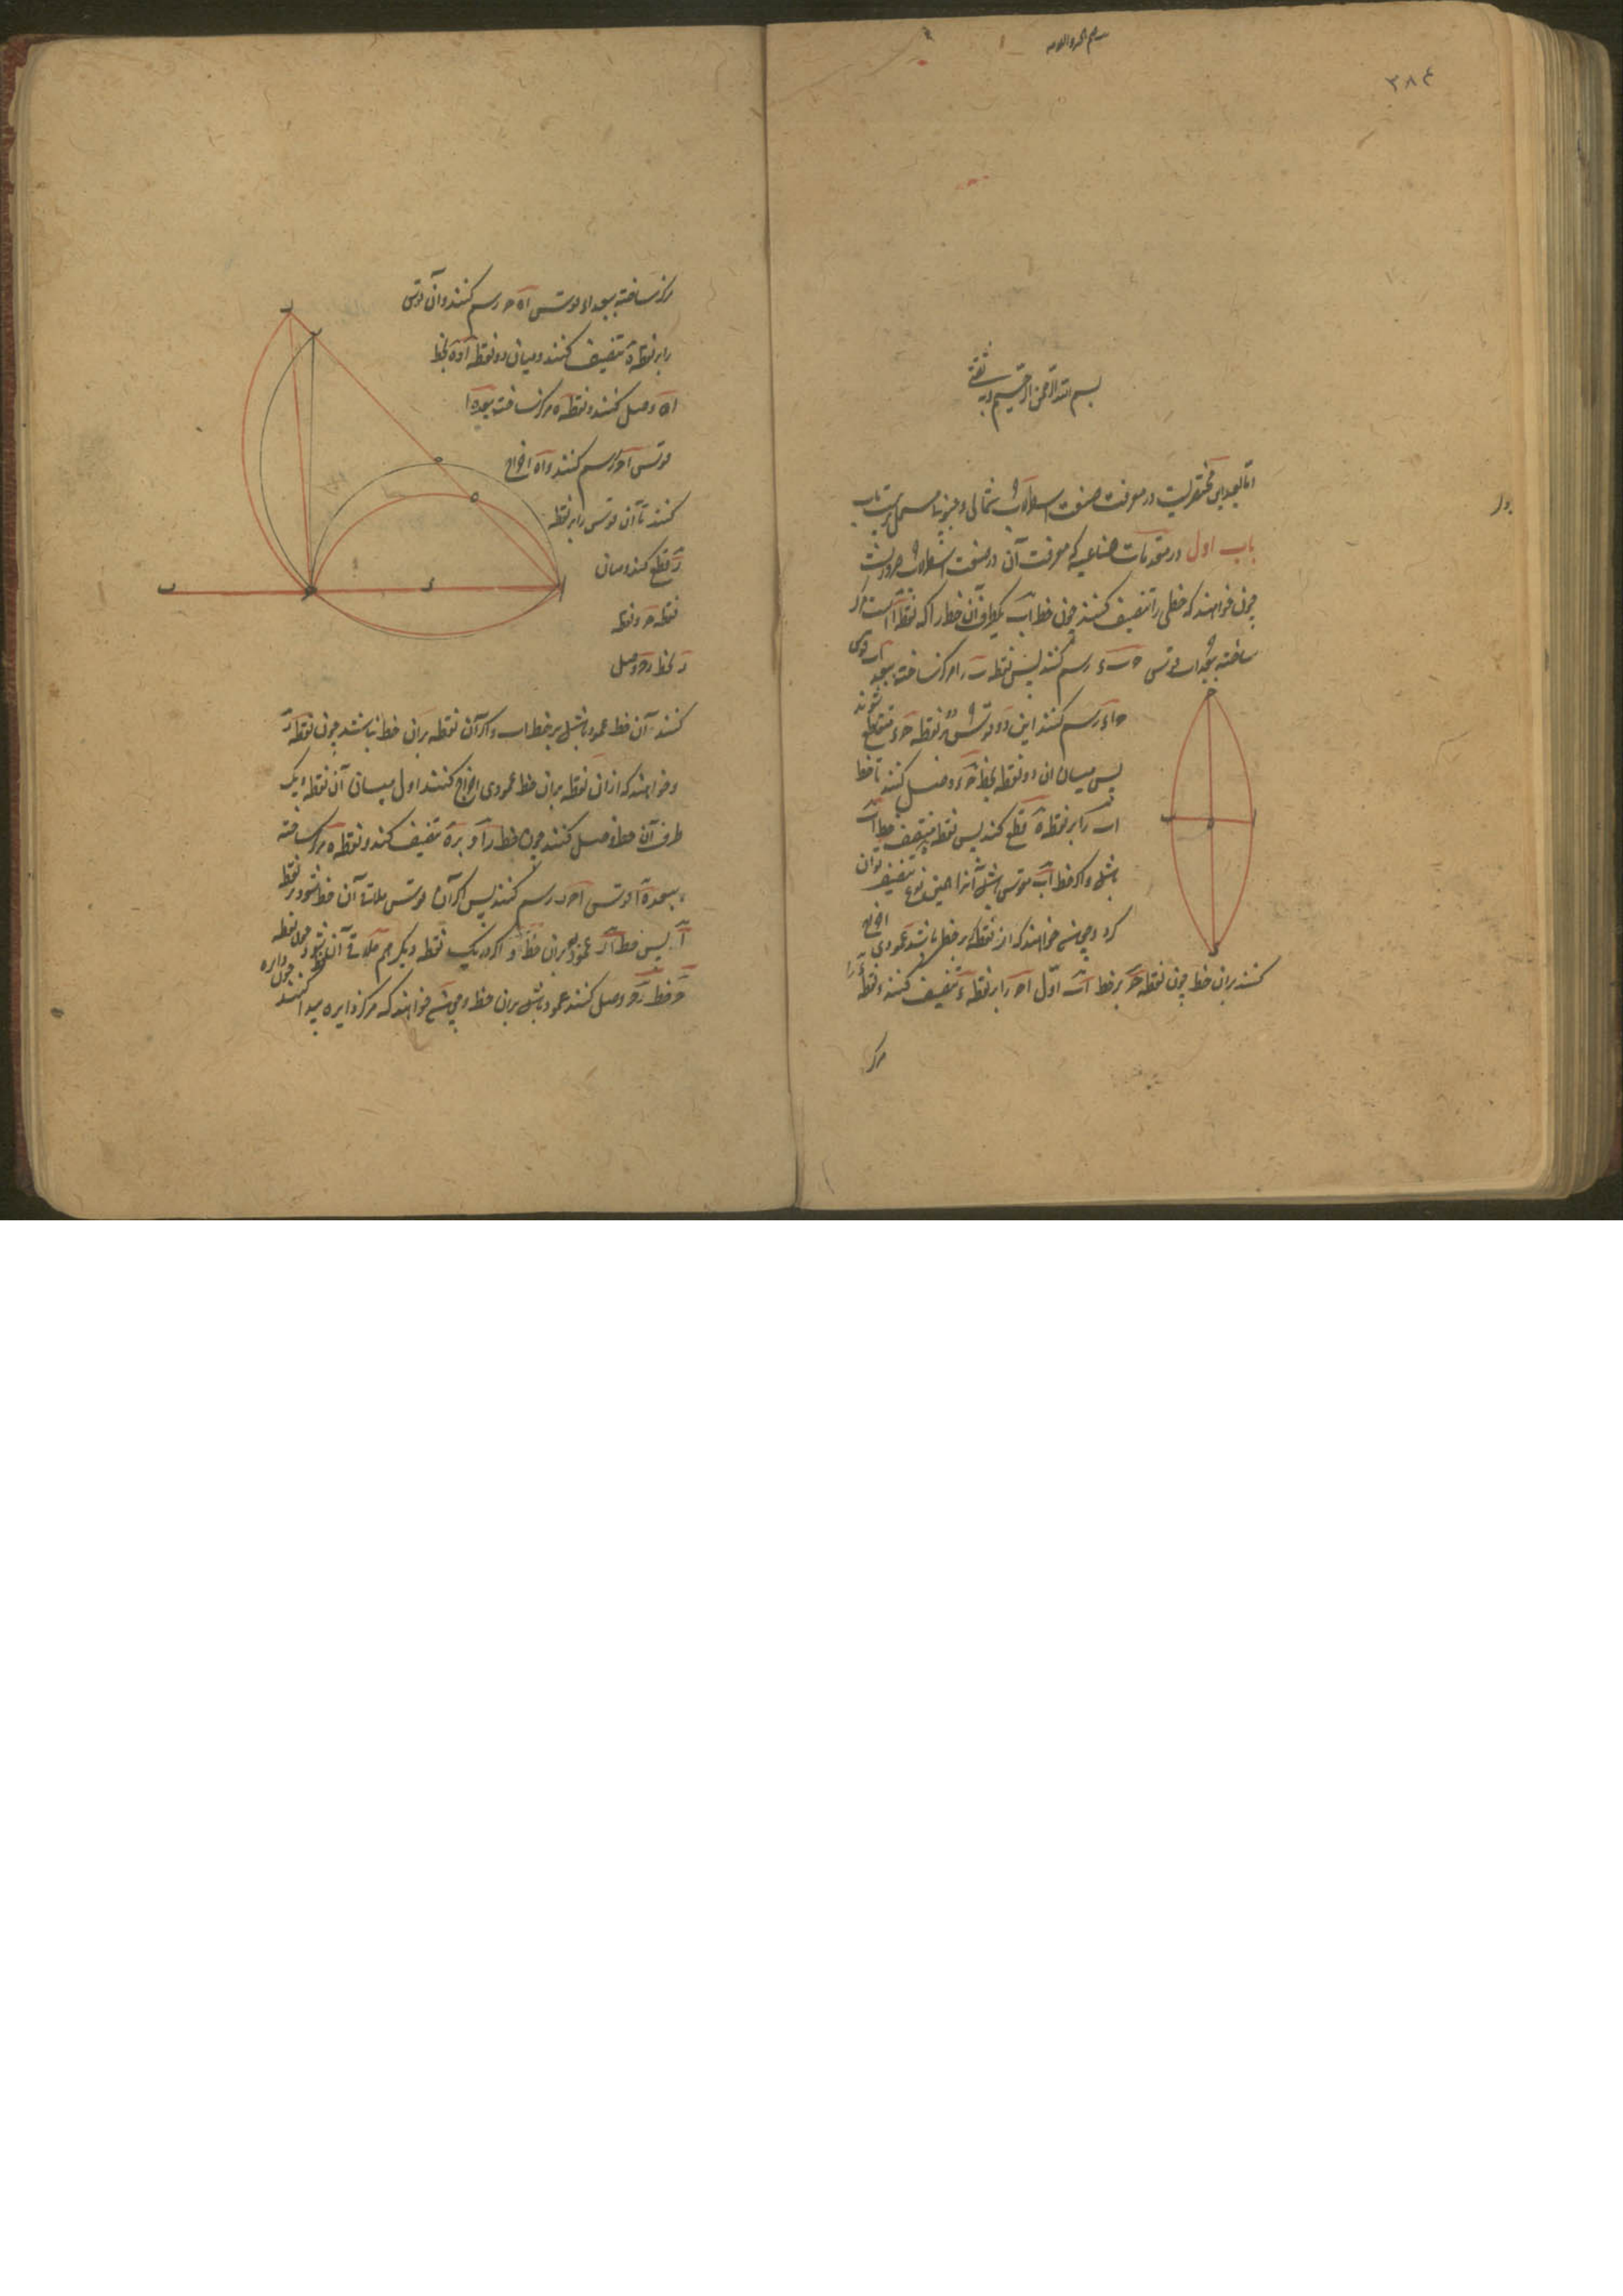 ۳۸۴
بسم الله الرحمن الرحیم وبه ثقتی
اما بعد این مختصریست در معرفت صنعت اسطرلاب شمالی و جنوبی مشتمل بر بیست باب
باب اول در مقدمات صناعیه که معرفت آن در صنعت اسطرلاب ضروریست
چون خواهند که خطی را تنصیف کنند چون خط اب یکطرف آن خط را که نقطه ا است مرکز
ساخته ببعد اب قوسی ح ب ء رسم کنند پس نقطه ب را مرکز ساخته ببعد ب ا قوس
ح ا ء رسم کنند این دو قوس بر نقطه ح ء متقاطع شوند
پس میان این دو نقطه بخط ح ء وصل کنند تا خط
اب را بر نقطه ه قطع کند پس نقطه ه منتصف خط اب
باشد و اگر خط اب قوسی باشد آنرا بهمین نوع تنصیف توان
کرد و چون خواهند که از نقطه که بر خطی باشد عمودی اخراج
کنند بران خط چون نقطه ح بر خط اب اول اح را بر نقطه ء تنصیف کنند و نقطه ء را
مرکز
مرکز ساخته ببعد اء قوس اه ح رسم کنند و آن قوس
را بر نقطه ه تنصیف کنند و میان دو نقطه ا و ه بخط
اه وصل کنند و نقطه ه مرکز ساخته ببعد ه ا
قوس اح ر رسم کنند و اه اخراج
کنند تا آن قوس را بر نقطه
ر قطع کند و میان
نقطه ح و نقطه
ر بخط رح وصل
کنند آن خط عمود باشد بر خط اب و اگر آن نقطه بران خط نباشد چون نقطه ر
و خواهند که ازان نقطه بران خط عمودی اخراج کنند اول میان آن نقطه و یک
طرف آن خط وصل کنند چون خط را و بر ه تنصیف کنند و نقطه ه مرکز ساخته
ببعد ه ا قوس اح ر رسم کنند پس اگر آن قوس ملاقات آن خط نشود بر نقطه
ا پس خط ار عمود بران خط و اگر در یک نقطه دیگر هم ملاقی آن خط شود چون نقطه
ح خط رح وصل کنند عمود باشد بران خط و چون خواهند که مرکز دایره پیدا کنند چون دایره